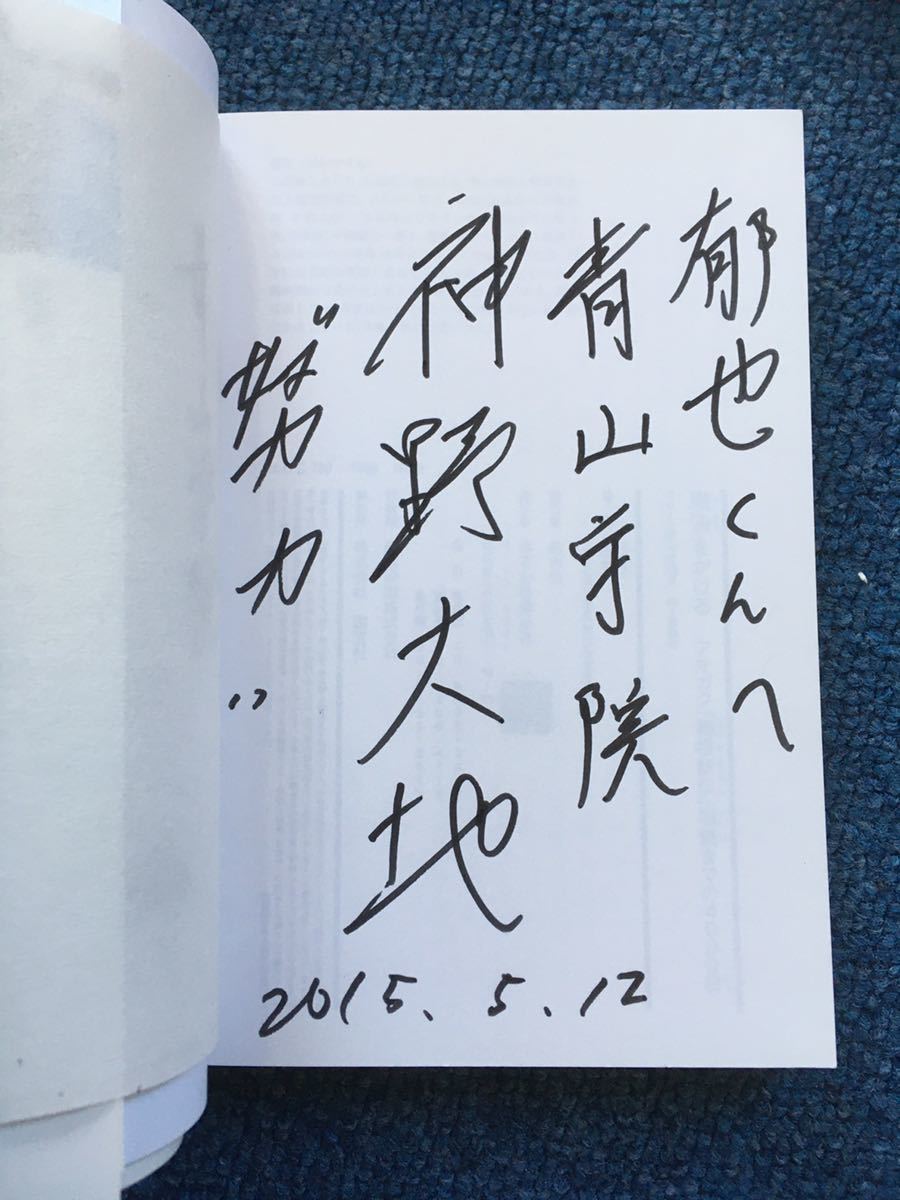 郁也くんへ
青山学院
神野大地
"努力"
2015.5.12